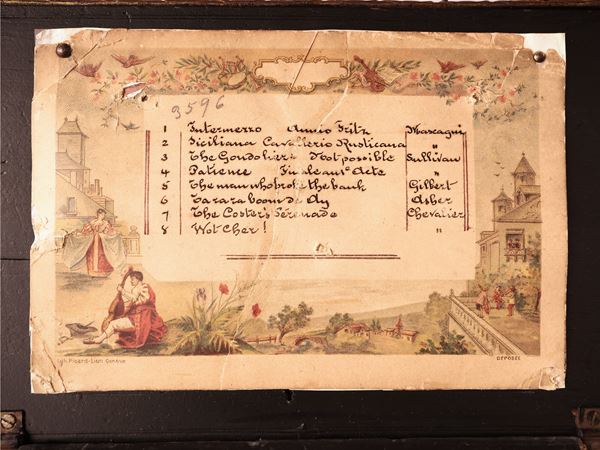 3596
1 Intermezzo Amico Fritz Mascagni
2 Siciliana Cavallerio Rusticana "
3 The Gondoliers Not possible Sullivan
4 Patience "
5 The man who broke the bank Gilbert
6 Ta ra ra boom de Ay Asher
7 The Coster's Serenade Chevalier
8 Wot Cher! "
Lith. Picard-Lion Genève
DÉPOSÉE